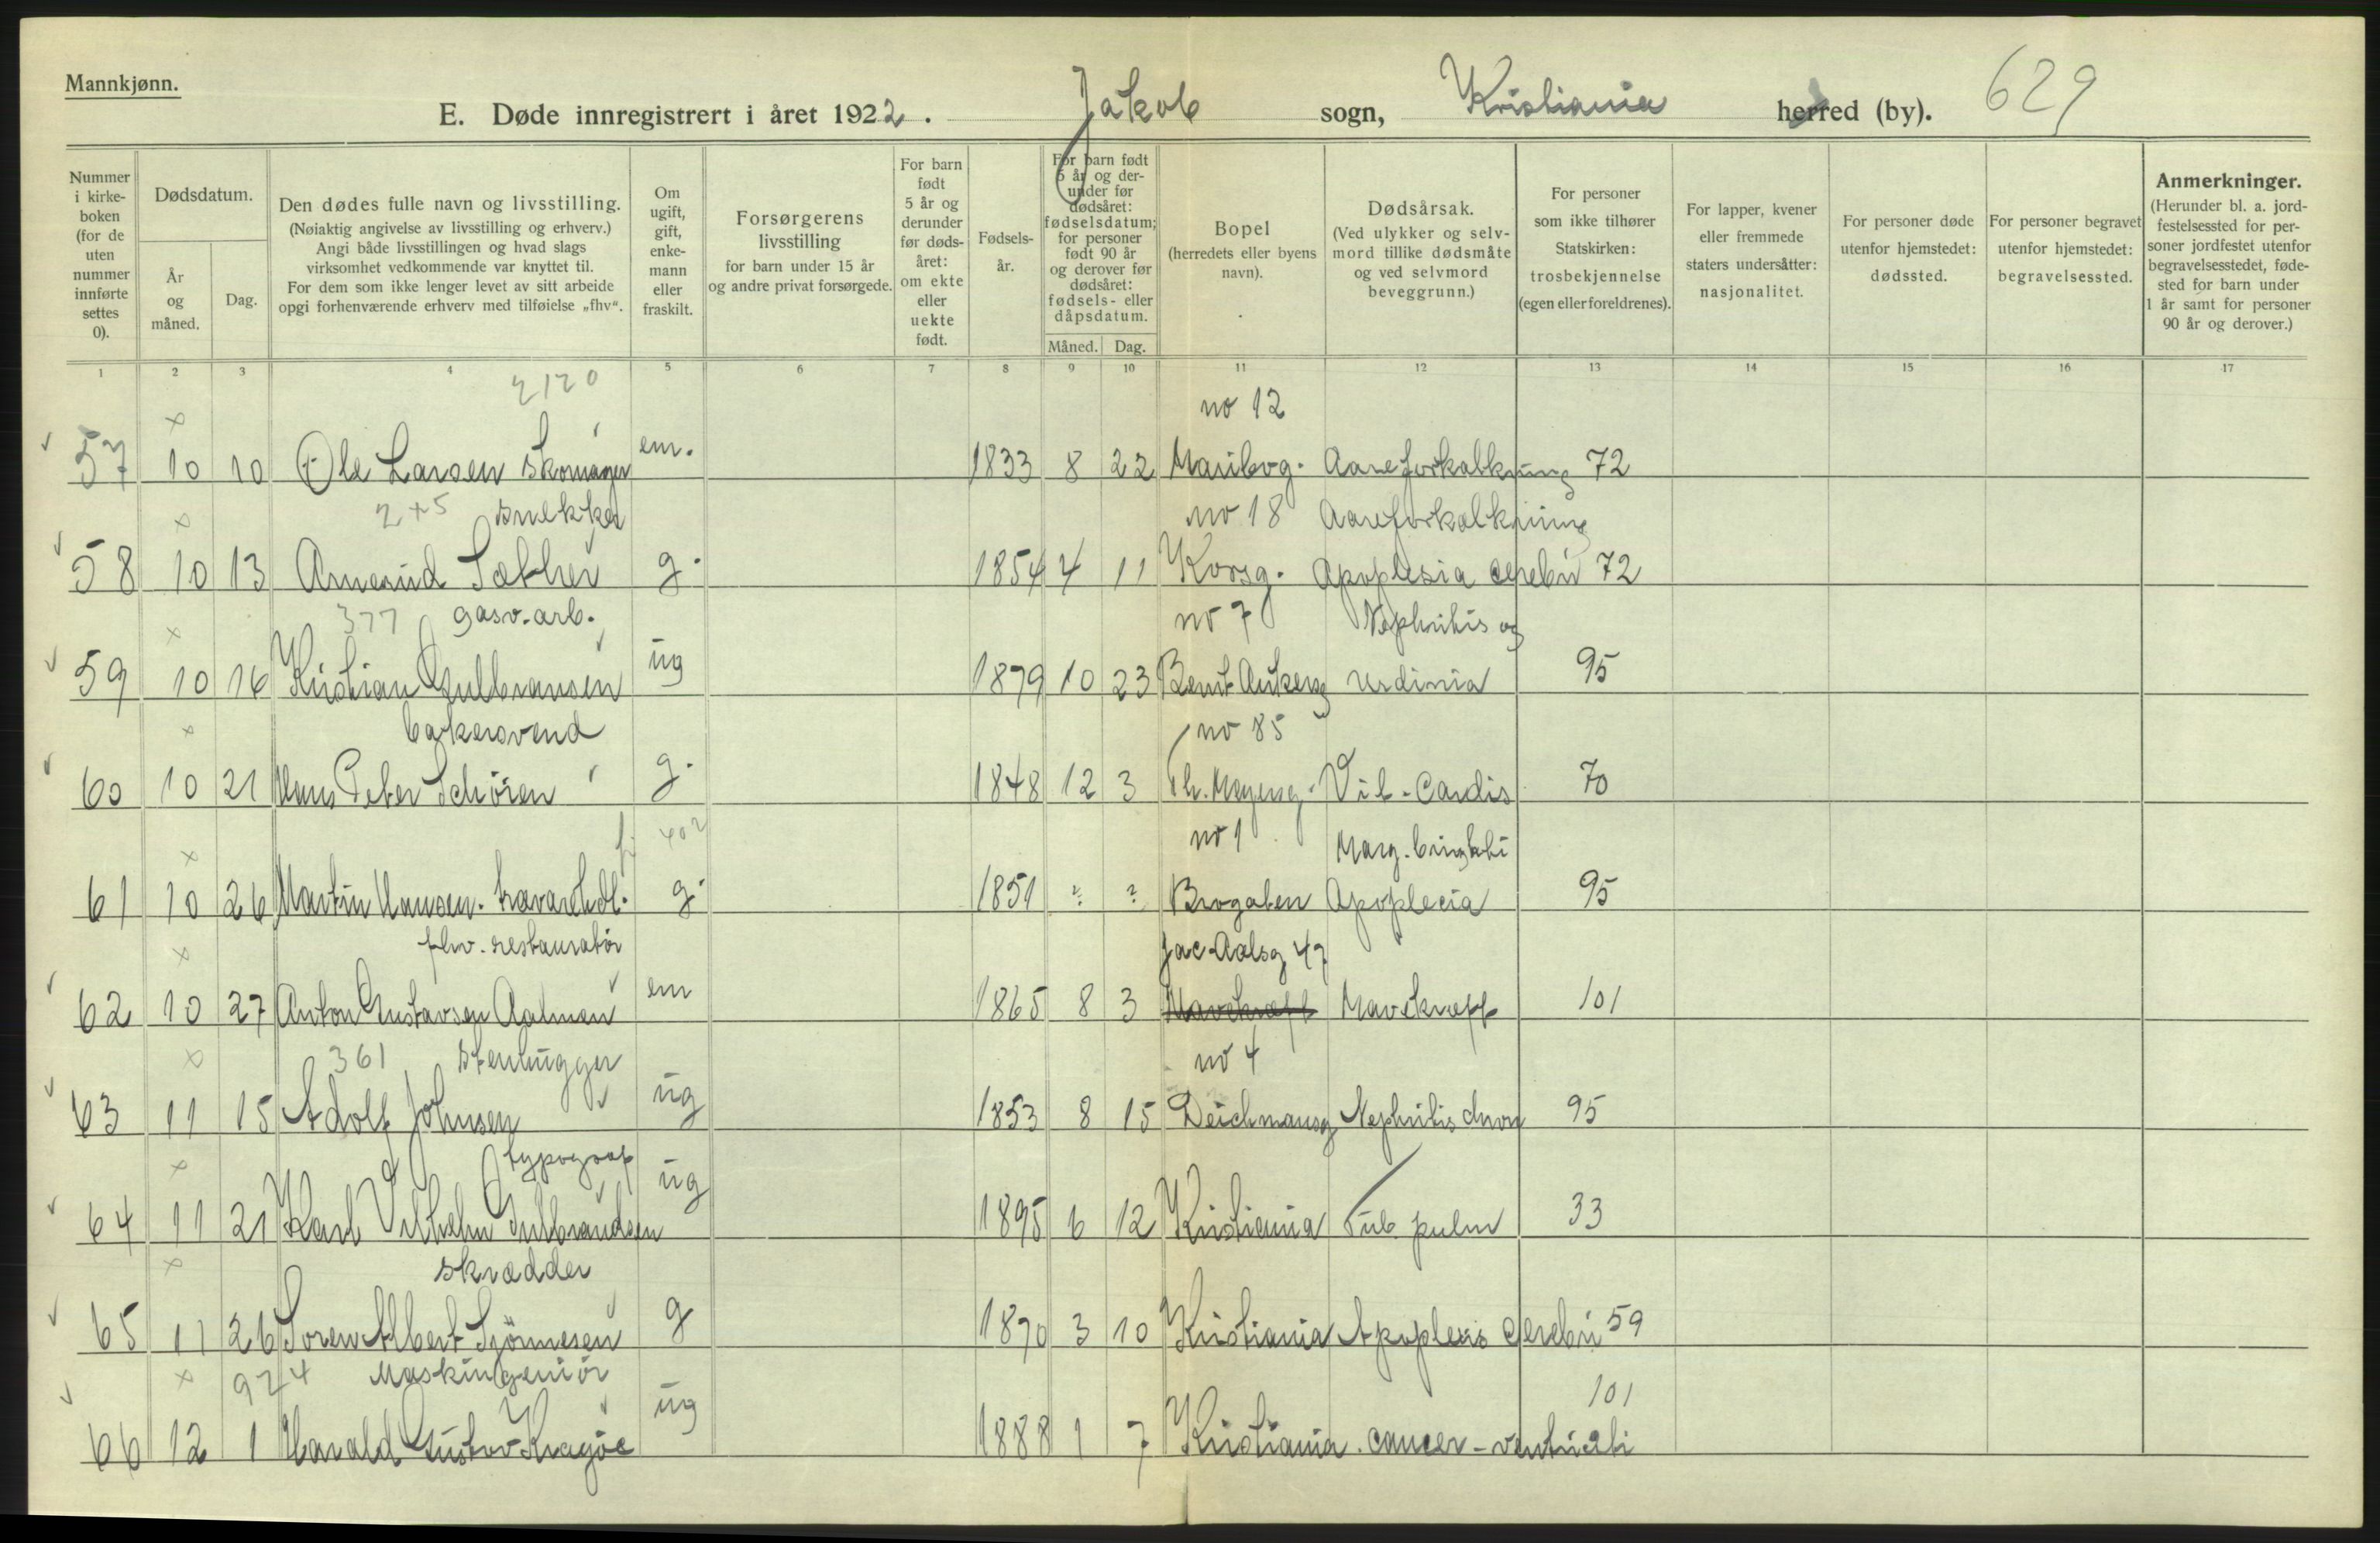 Mannkjønn.
E. Døde innregistrert i året 1922. Jakob sogn, Kristiania herred (by). 629
Nummer i kirkeboken (for de uten nummer innførte settes 0).
Dødsdatum.
År og måned.
Dag.
Den dødes fulle navn og livsstilling.
(Nøiaktig angivelse av livsstilling og erhverv.)
Angi både livsstillingen og hvad slags
virksomhet vedkommende var knyttet til.
For dem som ikke lenger levet av sitt arbeide
opgi forhenværende erhverv med tilføielse „fhv“.
Om ugift, gift, enkemann eller fraskilt.
Forsørgerens livsstilling
for barn under 15 år
og andre privat forsørgede.
For barn født 5 år og derunder før dødsåret: om ekte eller uekte født.
Fødselsår.
For barn født 5 år og derunder før dødsåret: fødselsdatum; for personer født 90 år og derover før dødsåret: fødsels- eller dåpsdatum.
Måned. Dag.
Bopel
(herredets eller byens navn).
Dødsårsak.
(Ved ulykker og selvmord tillike dødsmåte og ved selvmord beveggrunn.)
For personer som ikke tilhører Statskirken: trosbekjennelse (egen eller foreldrenes).
For lapper, kvener eller fremmede staters undersåtter: nasjonalitet.
For personer døde utenfor hjemstedet: dødssted.
For personer begravet utenfor hjemstedet: begravelsessted.
Anmerkninger.
(Herunder bl. a. jordfestelsessted for personer jordfestet utenfor begravelsesstedet, fødested for barn under 1 år samt for personer 90 år og derover.)
1 2 3 4 5 6 7 8 9 10 11 12 13 14 15 16 17
2120
x no 12
57 10 10 Ole Larsen Skomager em. 1833 8 22 Maribog. Aareforkalkning 72
x 2+5 snekker no 18 Aareforkalkning
58 10 13 Sæther g. 1854 4 11 Korsg. Apoplexia cerebri 72
x 377 gasv. arb. no 7 Nephritis og
59 10 16 Kristian Gulbransen ug 1879 10 23 Bernt Ankersg 95
x bakersvend no 85
60 10 21 Hans Peter g. 1848 12 3 Th. Meyersg. Vit. Cordis 70
x 402 no 1
61 10 26 Martin Hansen. trævarehdl. g. 1851 ? ? Brogaten Apoplecia 95
x fhv. restauratør Jac Aalsg 47
62 10 27 Anton Gustavsen Aalmen em 1865 8 3 Mavekræft Mavekræft 101
x 361 Stenhugger no 4
63 11 15 Adolf Johnsen ug 1853 8 15 Deichmansg Nephritis chron 95
x typograf
64 11 21 Karl Vilhelm Gulbrandsen ug 1895 6 12 Kristiania Tub. pulm 33
x skrædder
65 11 26 Soren Albert g 1870 3 10 Kristiania Apoplexis cerebri 59
x 924 Maskingeniør 101
66 12 1 Harald Gustov Kragøe ug 1888 1 7 Kristiania. cancer - ventricli